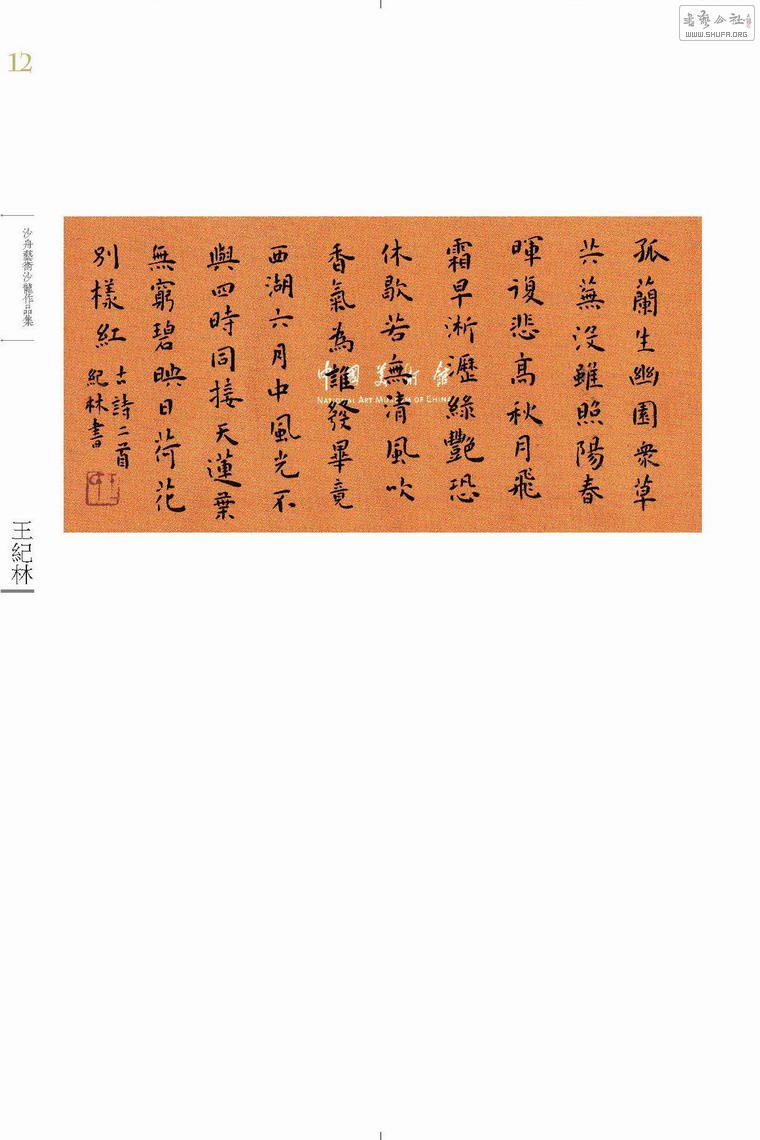 书艺公社
WWW.SHUFA.ORG
12
沙舟藝術沙龍作品集
王紀林
孤蘭生幽園衆草
共蕪没雖照陽春
暉復悲高秋月飛
霜早淅瀝綠艷恐
休歇若無清風吹
香氣為誰發畢竟
西湖六月中風光不
與四時同接天蓮葉
無窮碧映日荷花
別樣紅
古詩二首
紀林書
中國美术館
NATIONAL ART MUSEUM OF CHINA